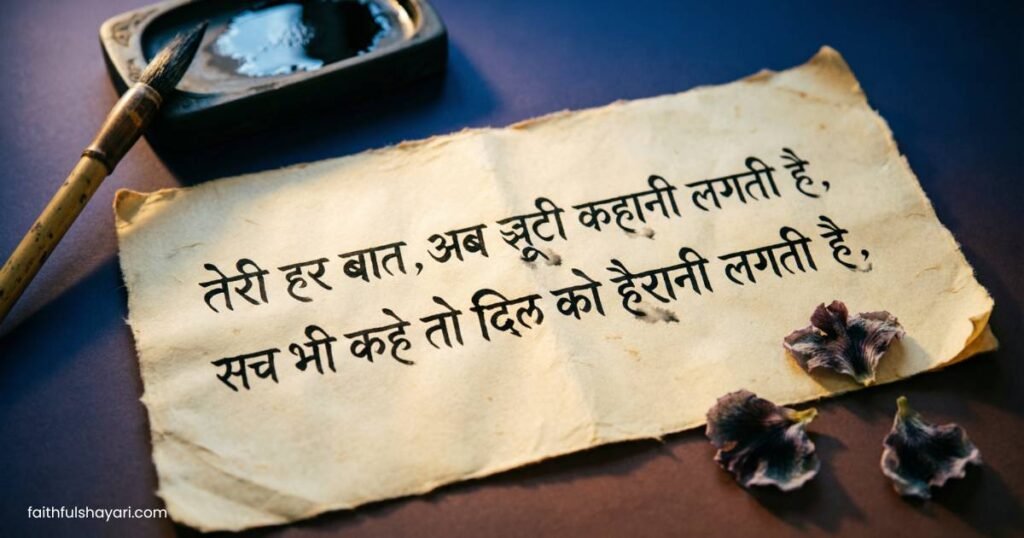 तेरी हर बात, अब झूटी कहानी लगती है,
सच भी कहे तो दिल को हैरानी लगती है,
faithfulshayari.com